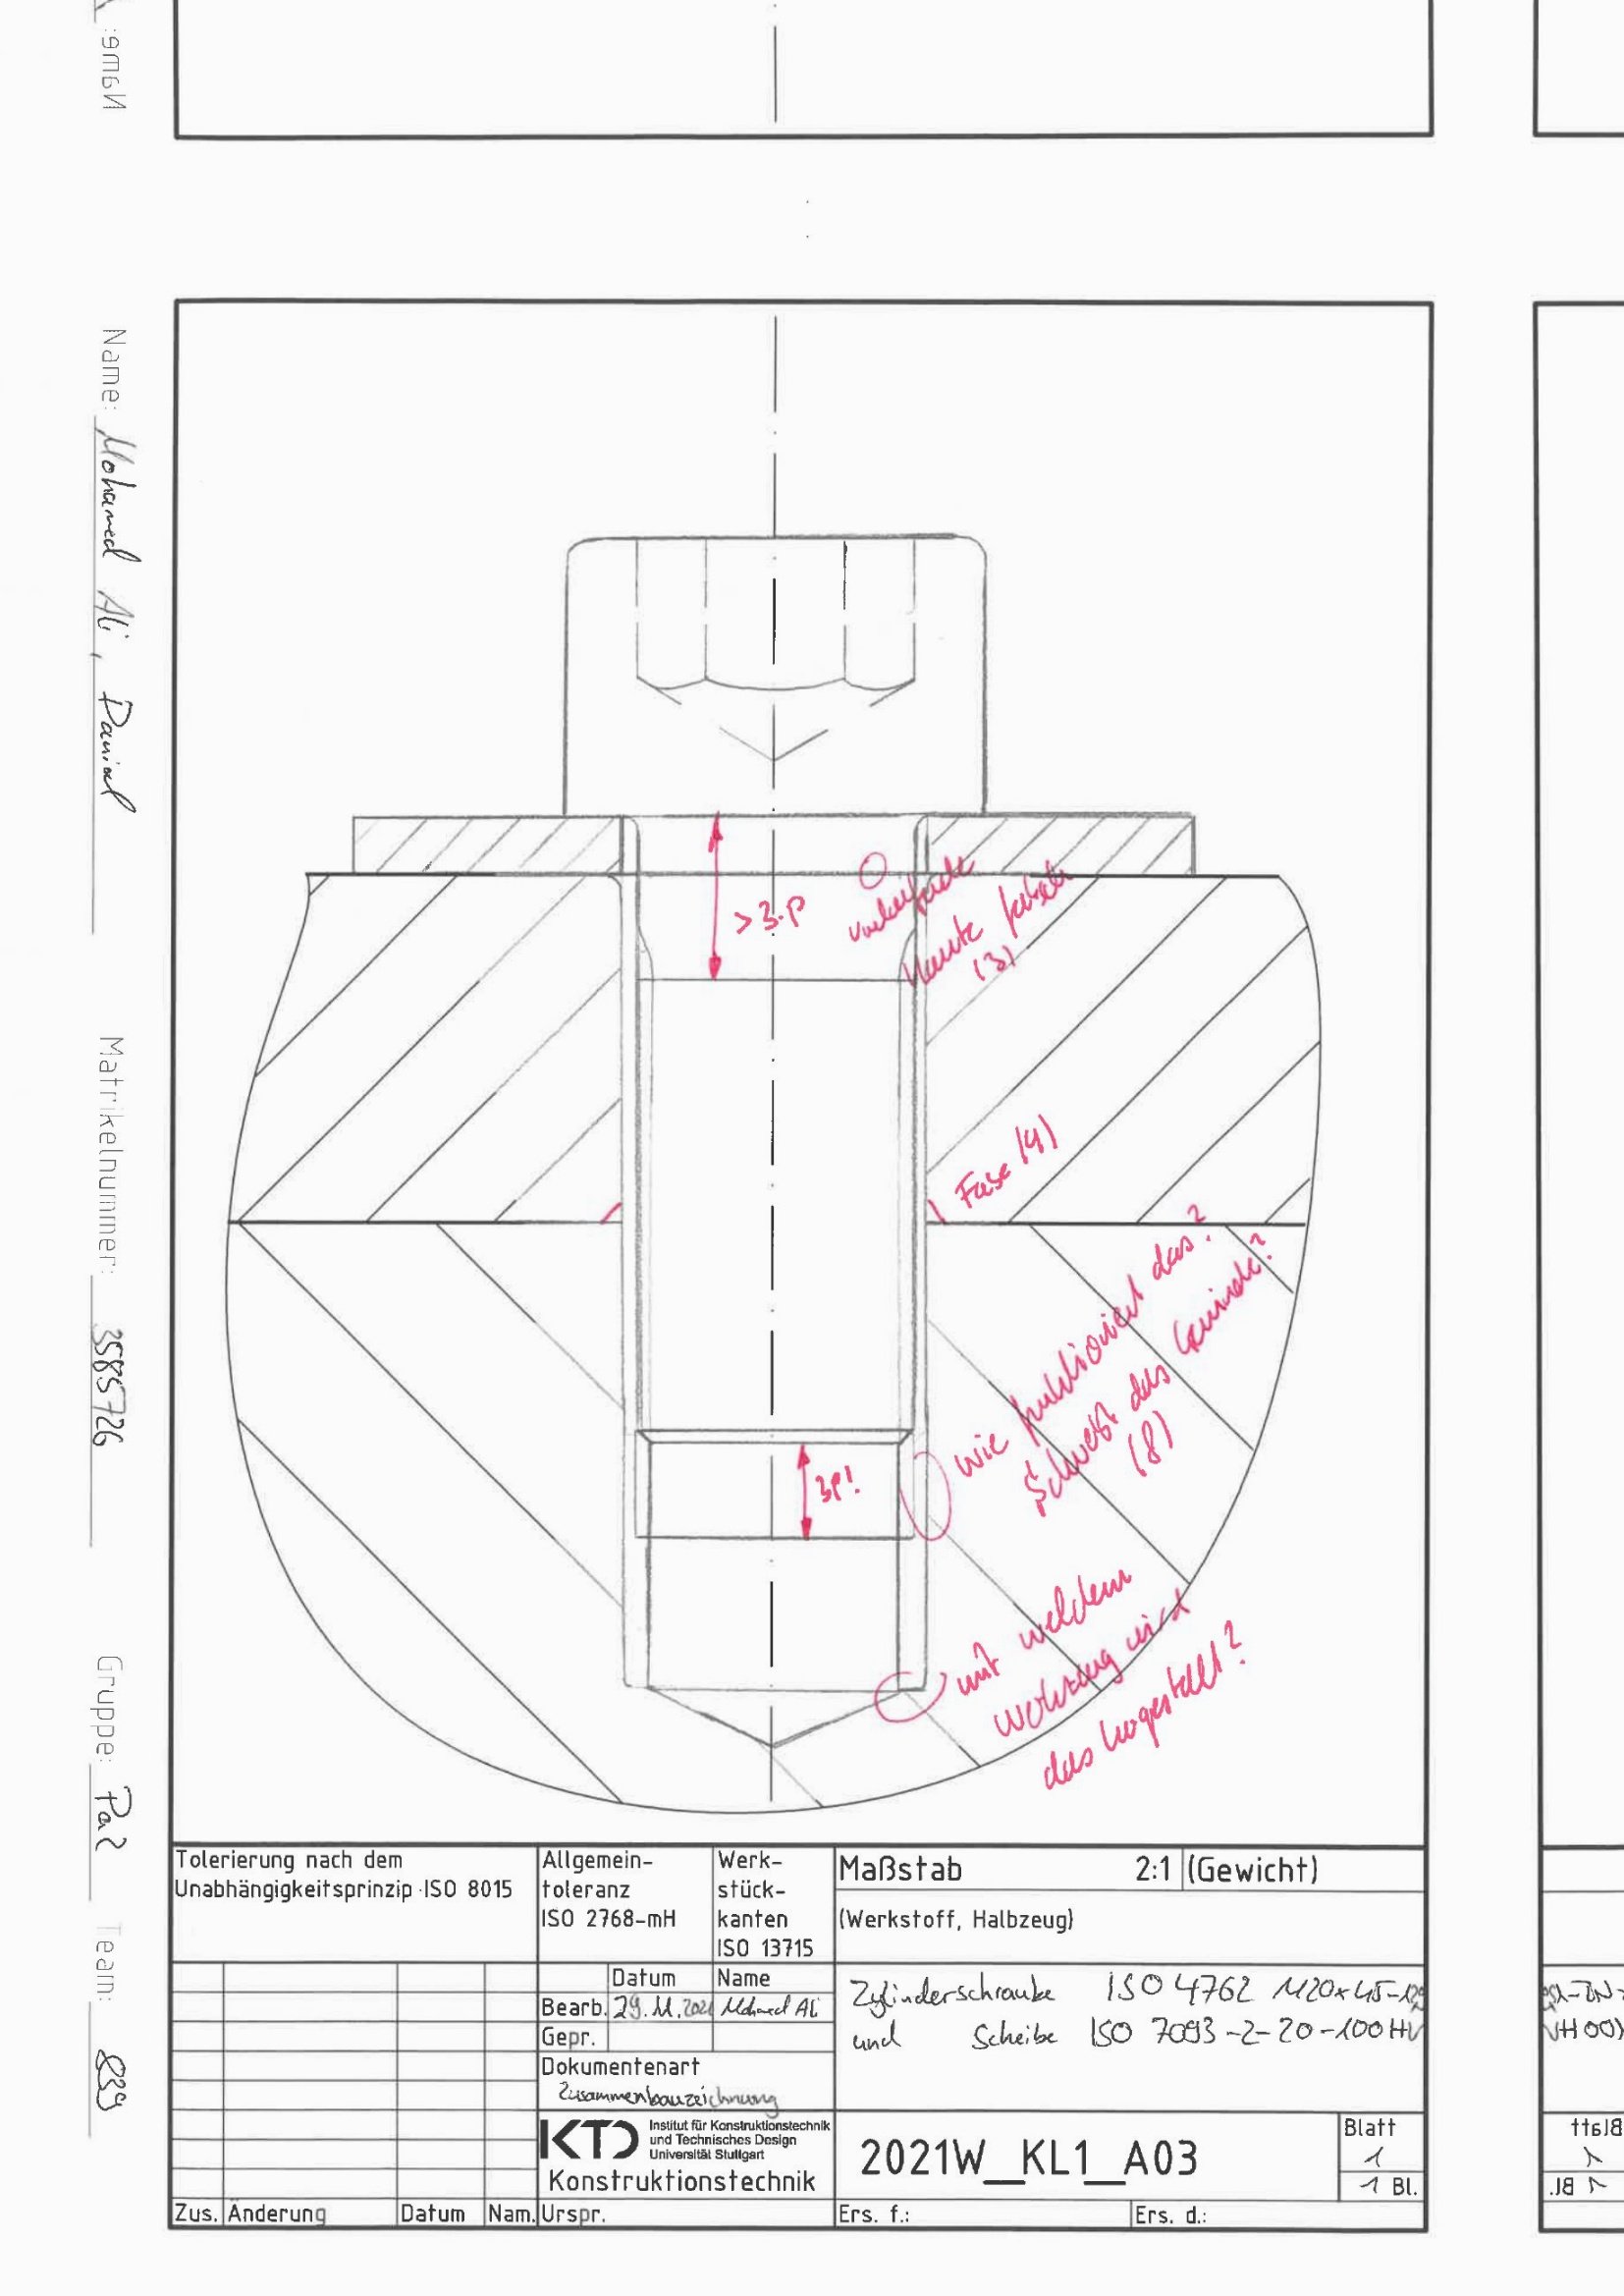 Name:
Name: Mohamed Ali, Danial
Matrikelnummer: 3585726
Gruppe: Pa2
Team: 839
>3·P
vorlaufende
Kante falsch
(3)
Fase (4)
wie funktioniert das?
Schwebt das Gewinde?
(8)
3P!
mit welchem
Werkzeug wird
das hergestellt?
Tolerierung nach dem
Unabhängigkeitsprinzip ISO 8015
Allgemein-
toleranz
ISO 2768-mH
Werk-
stück-
kanten
ISO 13715
Maßstab 2:1 (Gewicht)
(Werkstoff, Halbzeug)
Datum Name
Bearb. 29.11.2021 Mohamed Ali
Gepr.
Dokumentenart
Zusammenbauzeichnung
Zylinderschraube ISO 4762 M20x45-
und Scheibe ISO 7093-2-20-100HV
KTD Institut für Konstruktionstechnik
und Technisches Design
Universität Stuttgart
Konstruktionstechnik
2021W_KL1_A03
Blatt
1
1 Bl.
Zus. Änderung Datum Nam. Urspr. Ers. f.: Ers. d.:
Blatt
1
1 Bl.